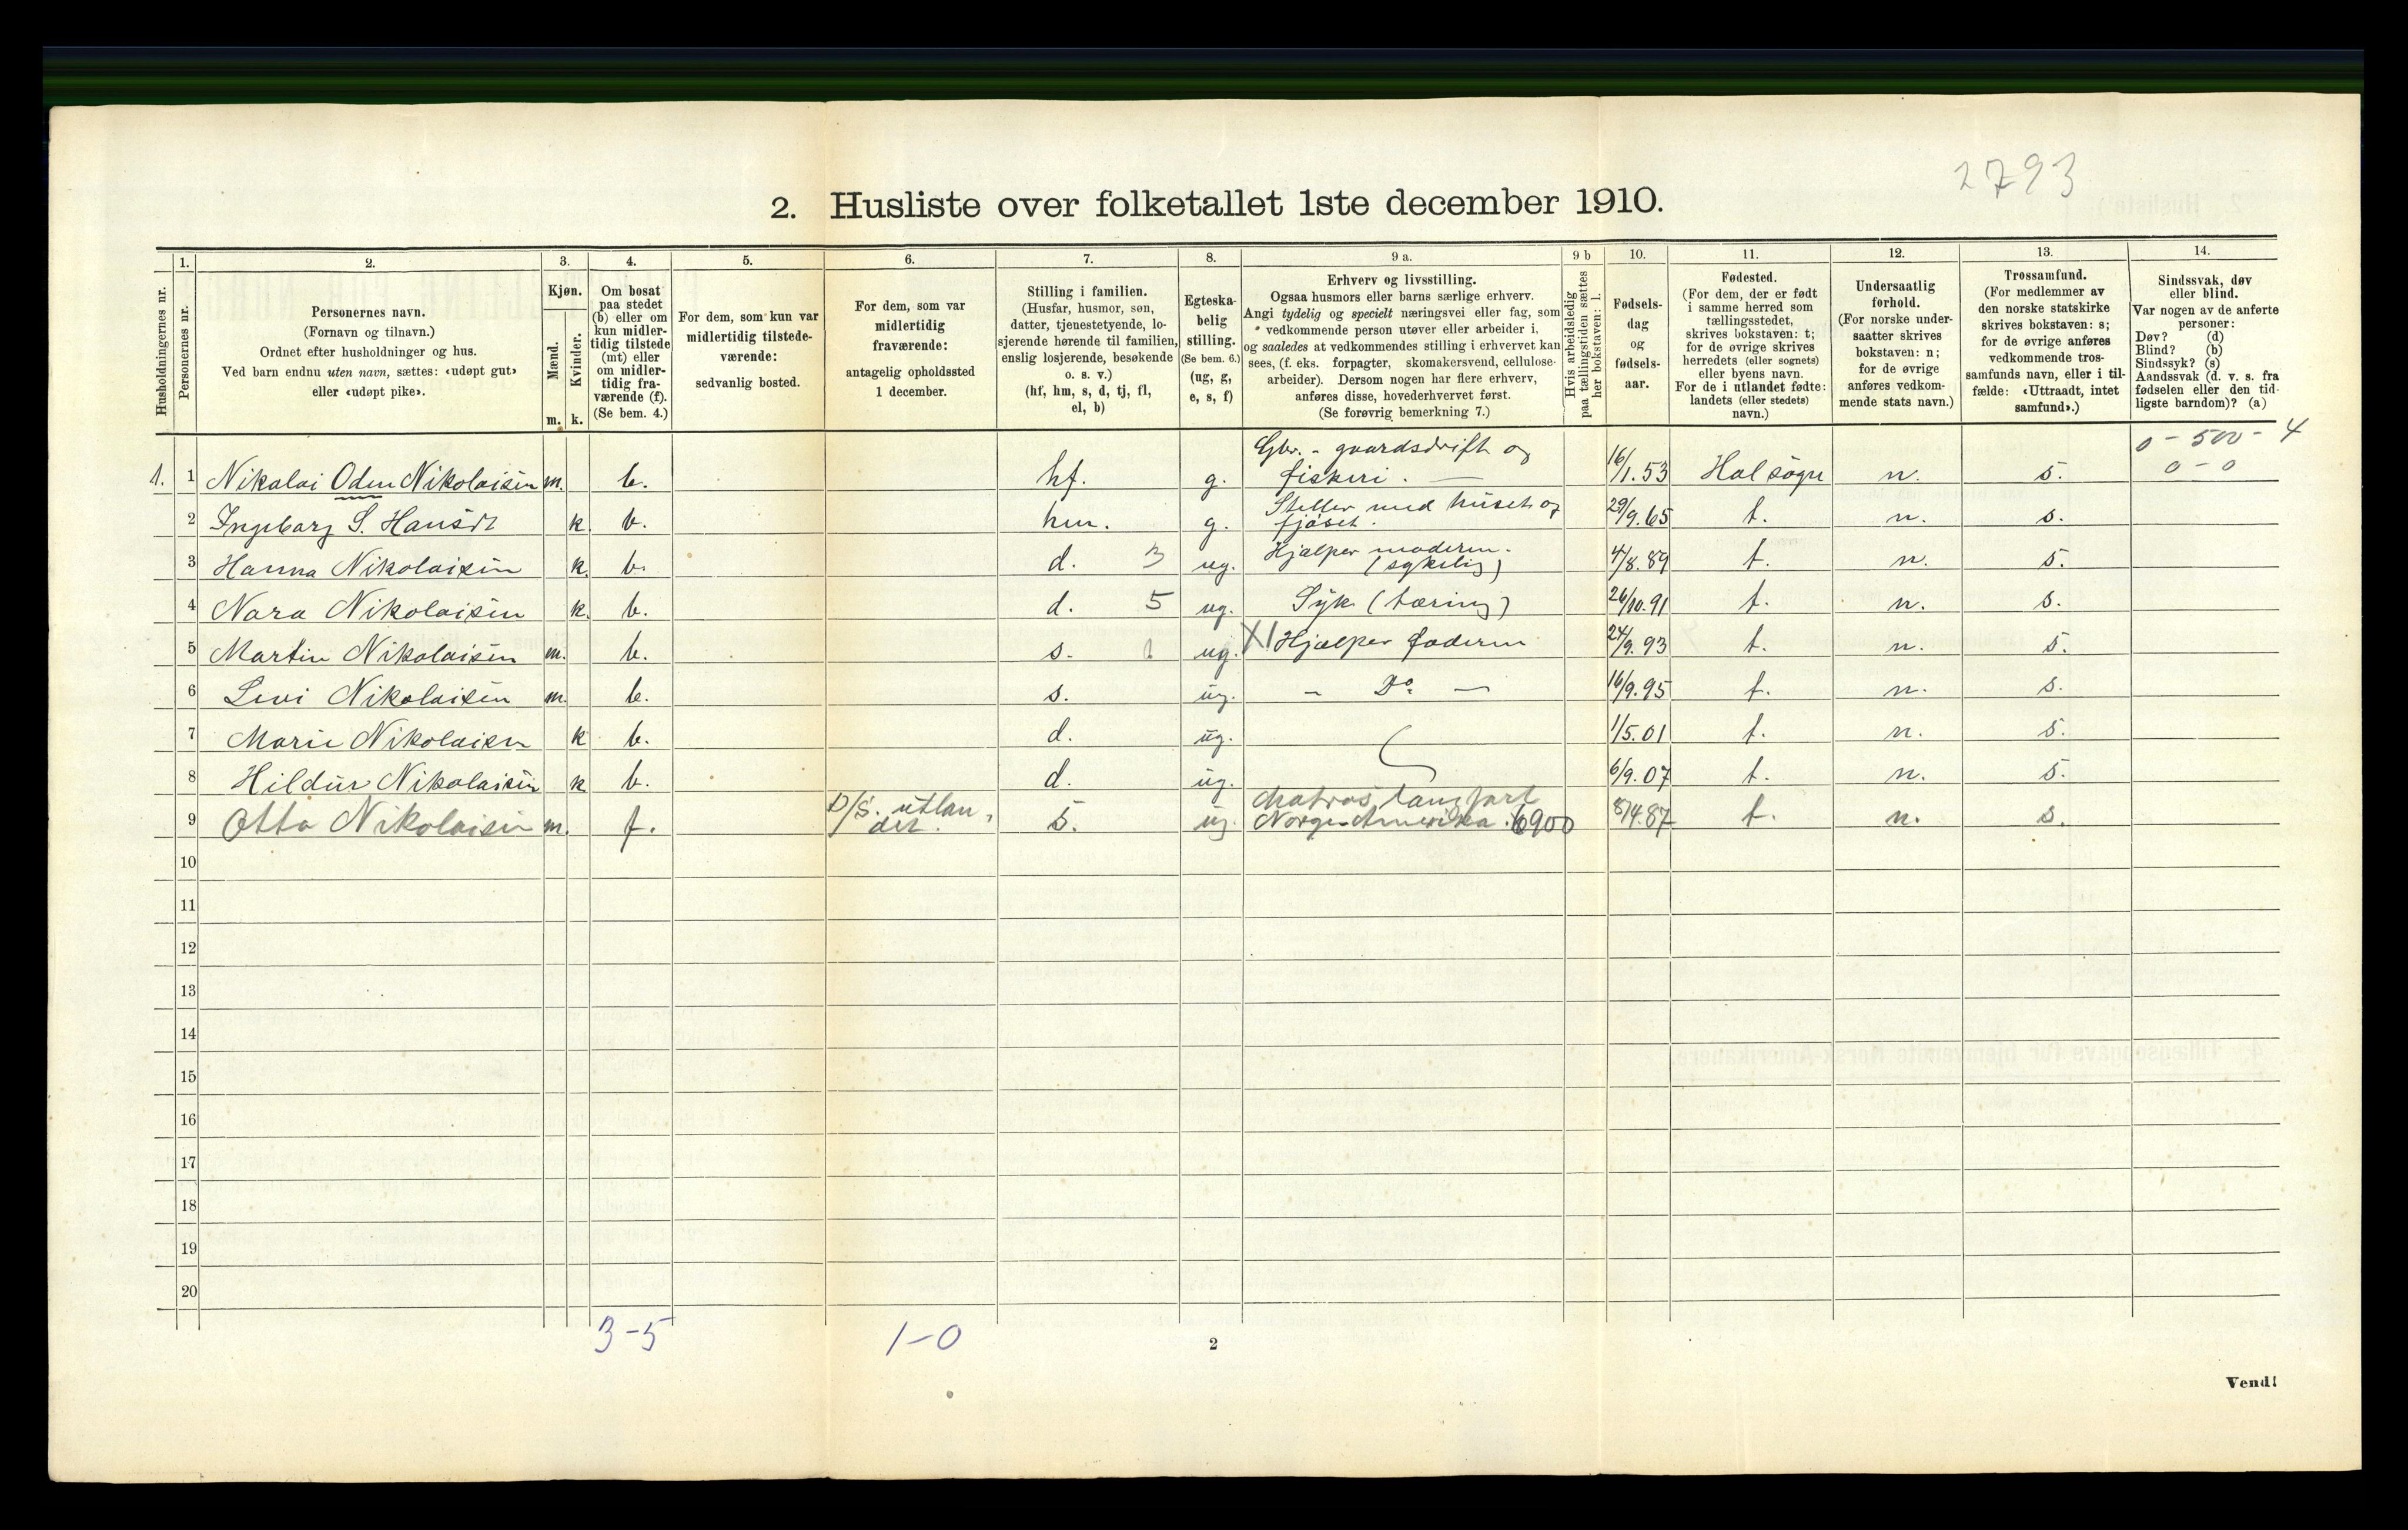 2793
2. Husliste over folketallet 1ste december 1910.
Husholdningernes nr.
1. Personernes nr.
2. Personernes navn. (Fornavn og tilnavn.) Ordnet efter husholdninger og hus. Ved barn endnu uten navn, sættes: «udøpt gut» eller «udøpt pike».
3. Kjøn. Mænd. m. Kvinder. k.
4. Om bosat paa stedet (b) eller om kun midler- tidig tilstede (mt) eller om midler- tidig fra- værende (f). (Se bem. 4.)
5. For dem, som kun var midlertidig tilstede- værende: sedvanlig bosted.
6. For dem, som var midlertidig fraværende: antagelig opholdssted 1 december.
7. Stilling i familien. (Husfar, husmor, søn, datter, tjenestetyende, lo- sjerende hørende til familien, enslig losjerende, besøkende o. s. v.) (hf, hm, s, d, tj, fl, el, b)
8. Egteska- belig stilling. (Se bem. 6.) (ug, g, e, s, f)
9 a. Erhverv og livsstilling. Ogsaa husmors eller barns særlige erhverv. Angi tydelig og specielt næringsvei eller fag, som vedkommende person utøver eller arbeider i, og saaledes at vedkommendes stilling i erhvervet kan sees, (f. eks. forpagter, skomakersvend, cellulose- arbeider). Dersom nogen har flere erhverv, anføres disse, hovederhvervet først. (Se forøvrig bemerkning 7.)
9 b Hvis arbeidsledig paa tællingstiden sættes her bokstaven: l.
10. Fødsels- dag og fødsels- aar.
11. Fødested. (For dem, der er født i samme herred som tællingsstedet, skrives bokstaven: t; for de øvrige skrives herredets (eller sognets) eller byens navn. For de i utlandet fødte: landets (eller stedets) navn.)
12. Undersaatlig forhold. (For norske under- saatter skrives bokstaven: n; for de øvrige anføres vedkom- mende stats navn.)
13. Trossamfund. (For medlemmer av den norske statskirke skrives bokstaven: s; for de øvrige anføres vedkommende tros- samfunds navn, eller i til- fælde: «Uttraadt, intet samfund».)
14. Sindssvak, døv eller blind. Var nogen av de anførte personer: Døv? (d) Blind? (b) Sindssyk? (s) Aandssvak (d. v. s. fra fødselen eller den tid- ligste barndom)? (a)
0 - 500 - 4
0 - 0
1. 1 Nikolai Oden Nikolaisen m. b. hf. g. Gbr. - gaardsdrift og fiskeri. 16/1.53 Hol sogn n. s.
2 Ingeborg S. Hansdt k. b. hm. g. Steller med huset og fjøset. 29/9.65 t. n. s.
3 Hanna Nikolaisen k. b. d. 3 ug. Hjælper moderen. (sykelig) 4/8.89 t. n. s.
4 Nora Nikolaisen k. b. d. 5 ug. Syk (tæring) 26/10.91 t. n. s.
5 Martin Nikolaisen m. b. s. 1 ug. X1 Hjælper faderen 24/9.93 t. n. s.
6 Levi Nikolaisen m. b. s. ug. - Do - 16/9.95 t. n. s.
7 Marie Nikolaisen k b. d. ug. 1/5.01 t. n. s.
8 Hildur Nikolaisen k b. d. ug. 6/9.07 t. n. s.
9 Otto Nikolaisen m. f. D/S. utlandet. s. ug. Matros, langfart Norge-Amerika. 6900 8/4.87 t. n. s.
10
11
12
13
14
15
16
17
18
19
20
3-5 1-0
2
Vend!